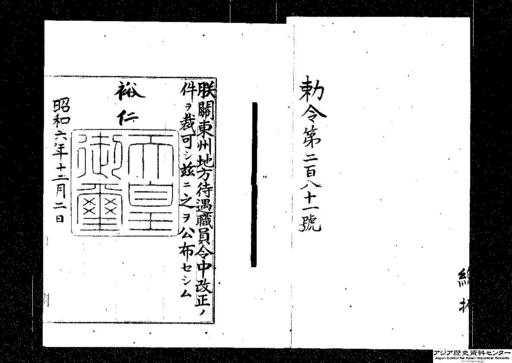 勅令第二百八十一號
朕關東州地方待遇職員令中改正ノ
件ヲ裁可シ茲ニ之ヲ公布セシム
裕仁
天皇
御璽
昭和六年十二月二日
アジア歴史資料センター
Japan Center for Asian Historical Records